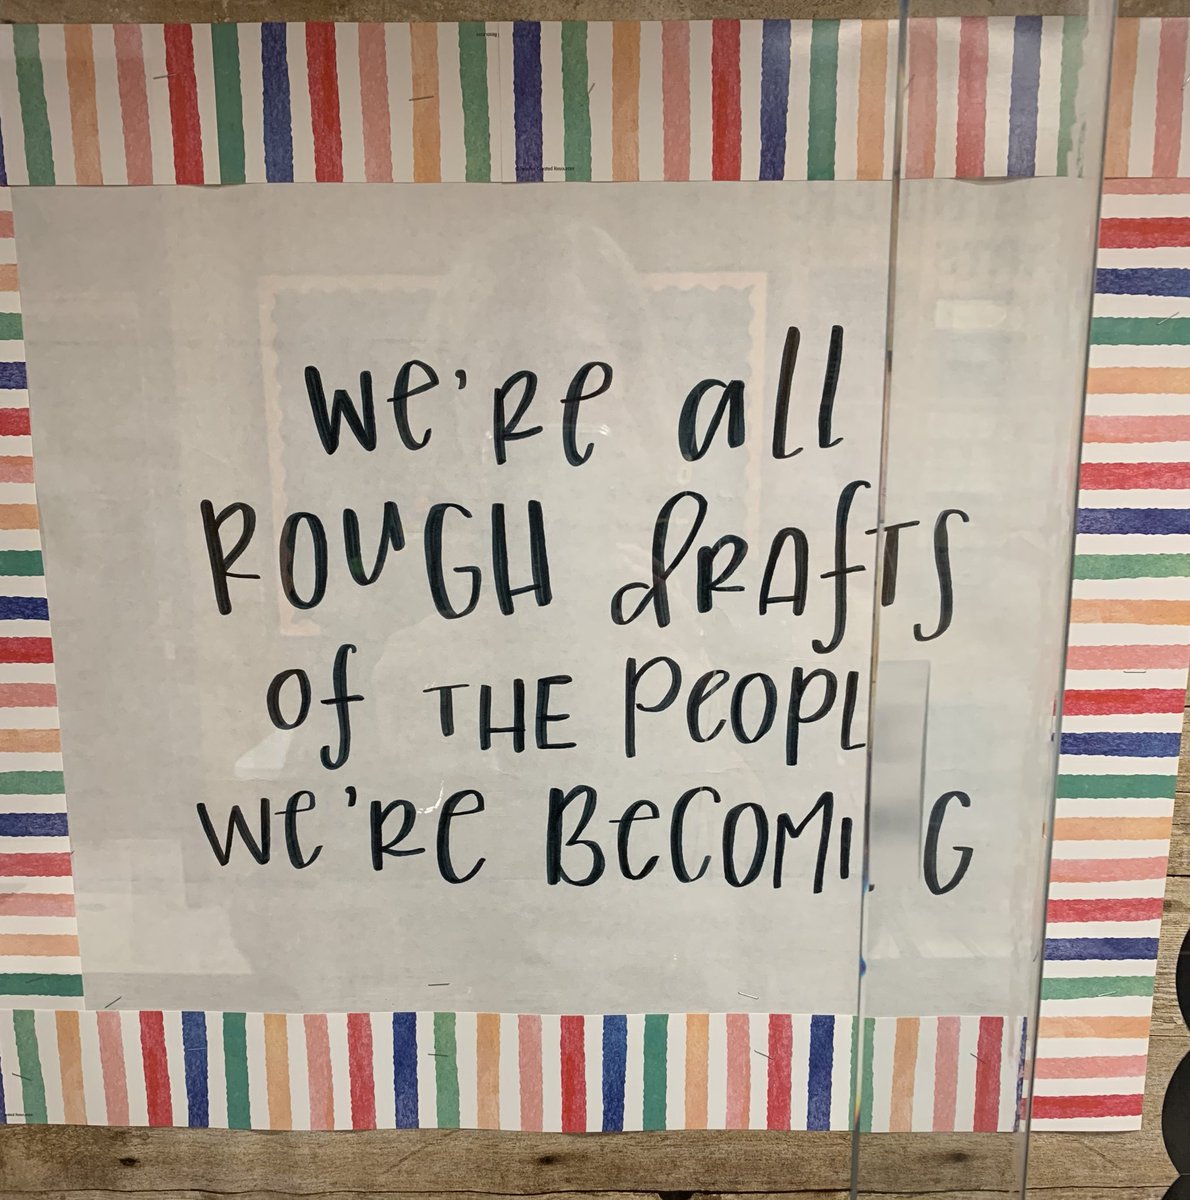 we're all
ROUGH dRAfTS
of THE PeOPL
we're BeCOMI G